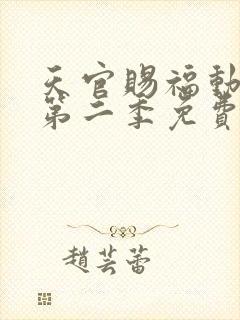 天官賜福動
第二季免費
趙芸蕾